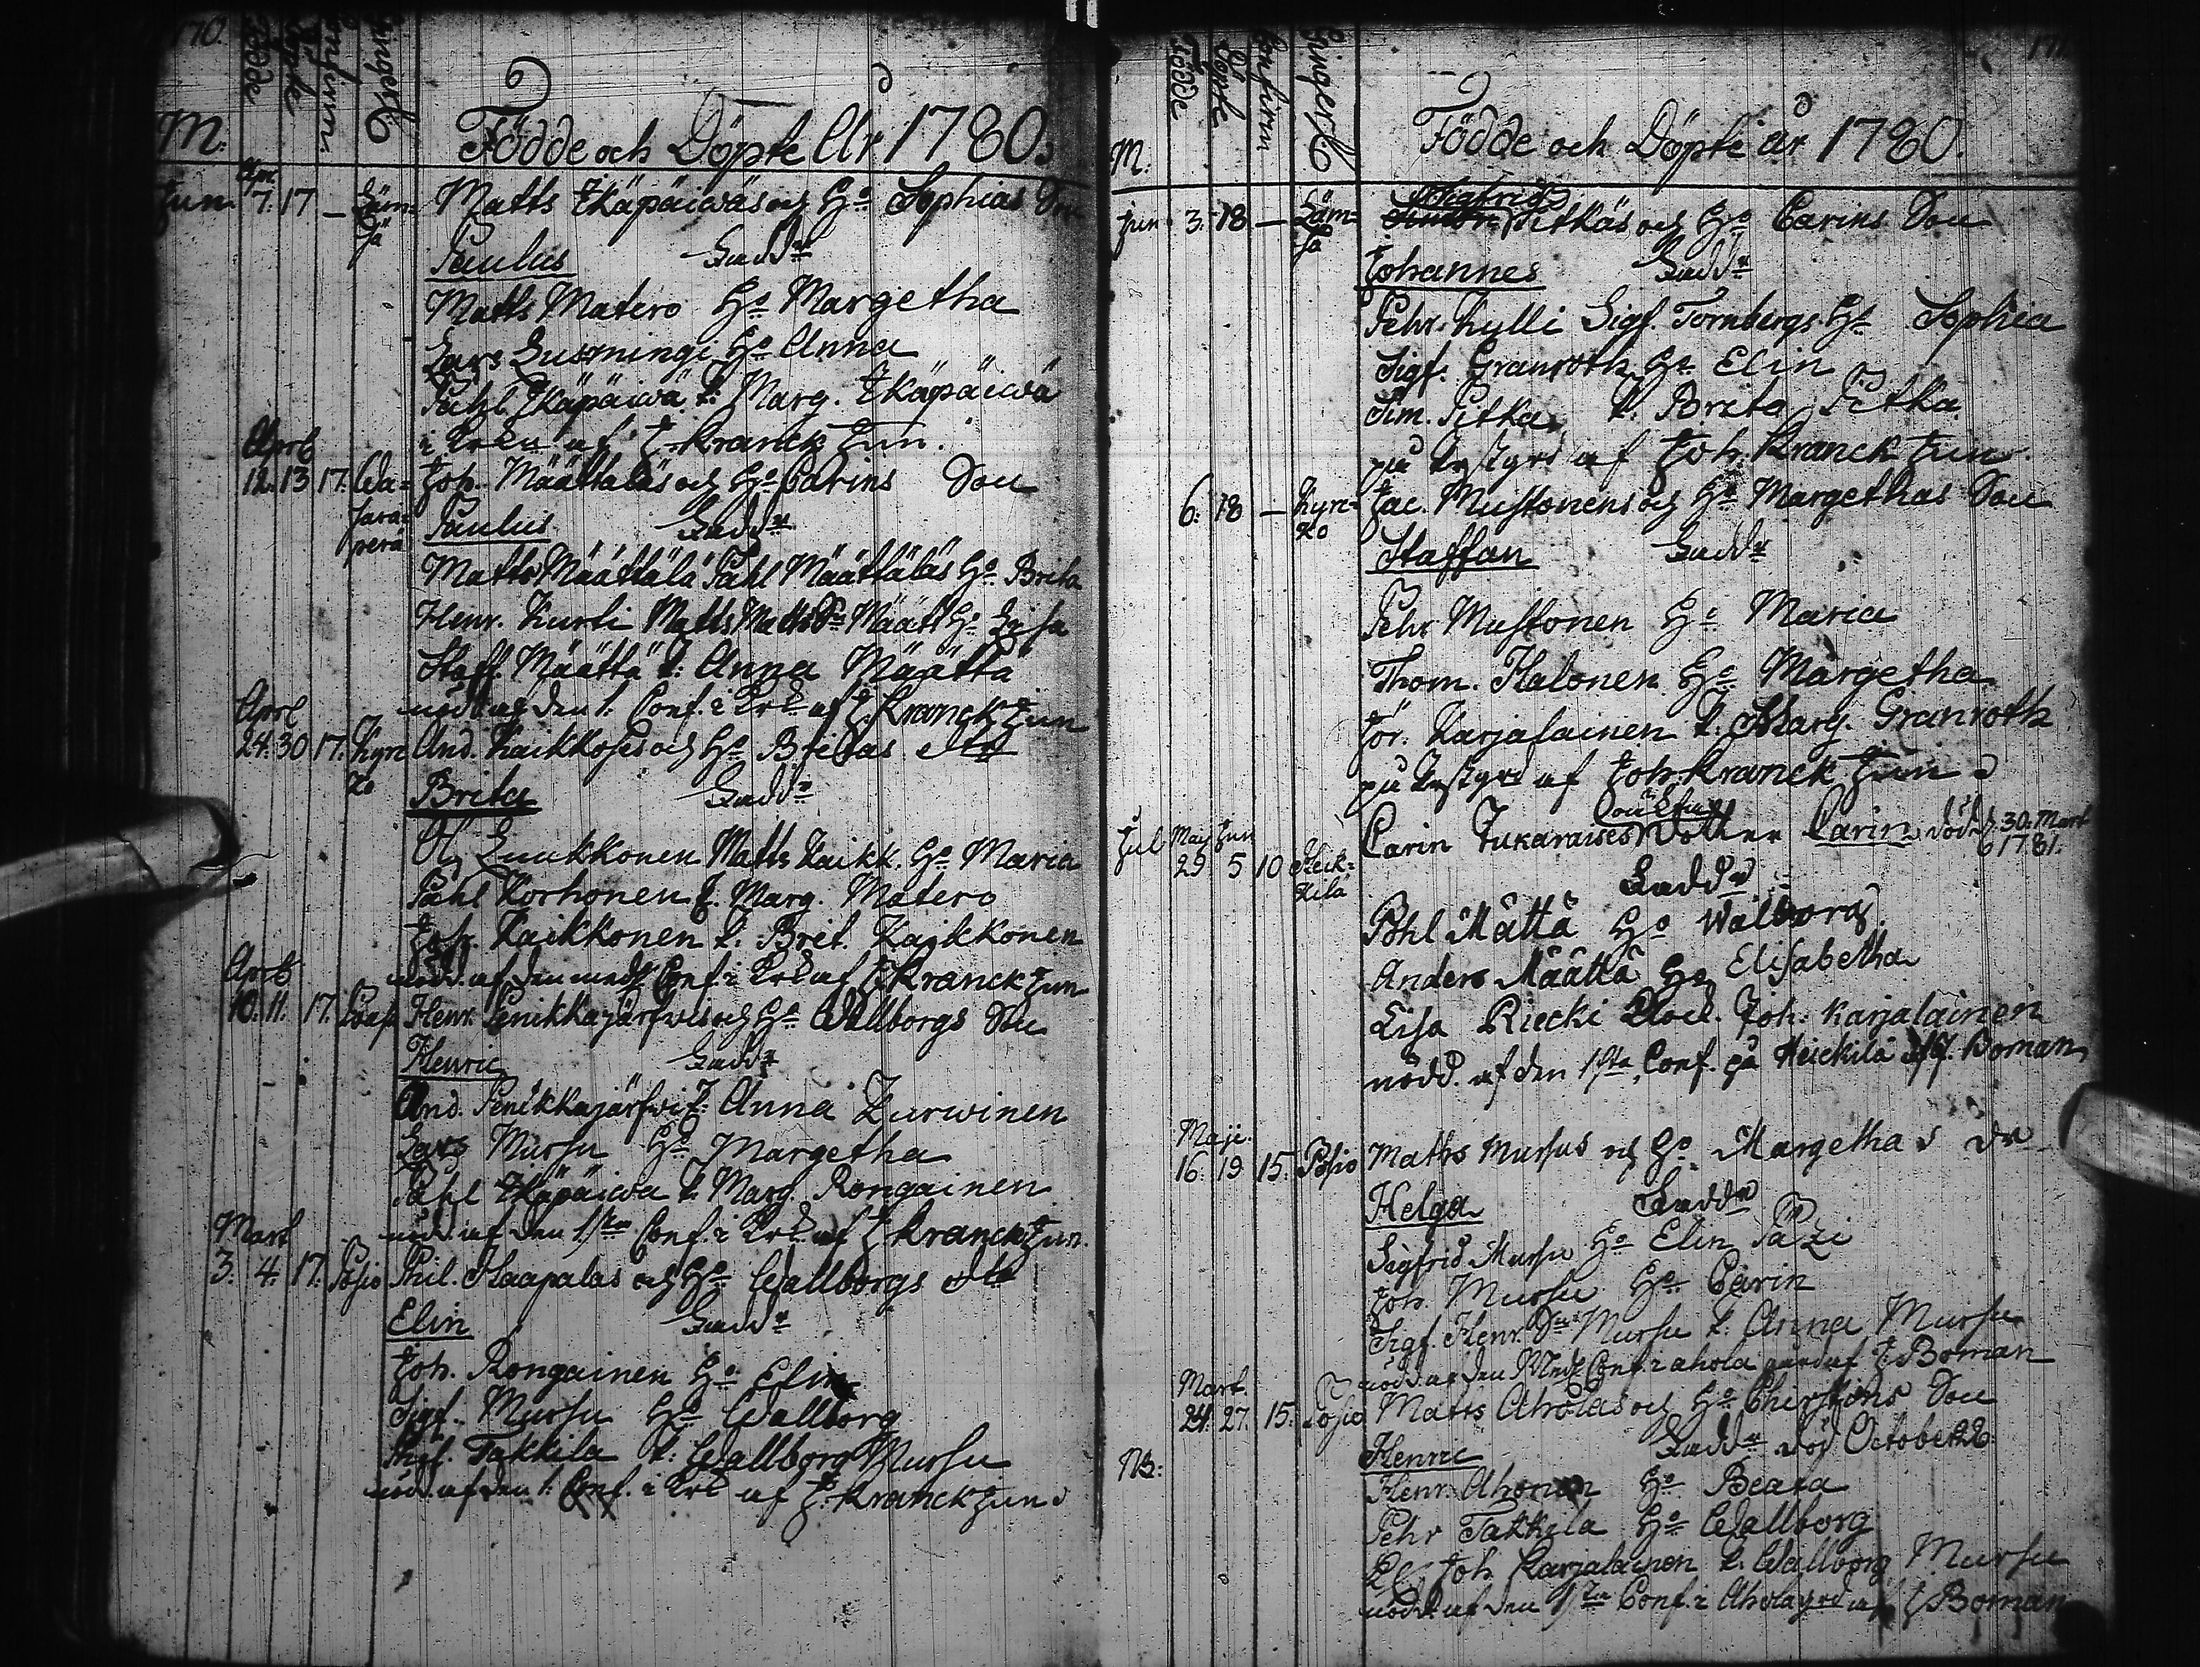 170.
Födde Döpte Confirm. Finge[r]
M. Födde och Döpte År 1780.
Jun. 7. 17 – Läm=sä Matts Ikäpäiwäs och Ho Sophias Son
Paulus Fadd:r
Matts Matero Ho Margetha
Lars Lusmingi Ho Anna
Påhl Ikäpäiwä P: Marg. Ikäpäiwä
i Krkn af J. Kranck Jun.
April
12. 13 17. Wa=sara=perä Joh. Määttäläs och Ho Carins Son
Paulus Fadd:r
Matts Määttälä Påhl Määttäläs Ho Brita
Henr. Kurti Matts Matts Sn Määtt Ho Lisa
Staff. Määttä P: Anna Määttä
nödd. af den 1: Conf. i Krk af J. Kranck Jun
April
24. 30 17. Kyrc ko And. Kaikkoses och Ho Britas
Brita Fadd:r
Ol. Luukkonen Matts Kaikk. Ho Maria
Påhl Korhonen P. Marg. Matero
Joh. Kaikkonen P. Brit. Kaikkonen
nödd. af den Conf. i Krk af J Kranck Jun
April
10. 11. 17. Henr. Penikkajärfwis och Ho Wallborgs Son
Henric Fadd:r
And. Penikkajärfwi P: Anna Kurwinen
Lars Mursu Ho Margetha
Påhl Ikäpäiwä P. Marg. Rongainen
nödd. af den 1sta Conf. i Krk af J Kranck Jun.
Mart
3. 4. 17. Posio Phil. Haapalas och Ho Wallborgs
Elin Fadd:r
Joh. Rongainen Ho Elin
Sigf. Mursu Ho Wallborg
Sigf. Takkila P: Wallborg Mursu
nödd. af den 1: Conf. i Krk af J. Kranck Jun
171.
Födde Döpte Confirm
M. Födde och Döpte år 1780.
Jun 3. 18. – Läm=sä Sigfrid Pitkäs och Ho Carins Son
Johannes Fadd:r
Pehr Kylli Sigf. Tornbergs Ho Sophia
Sigf. Granroth Ho Elin
Sim. Pitka P. Brita Pitka
på af Joh. Kranck Jun
6. 18 – Kyrc=ko Jac. Mustonens och Ho Margethas Son
Staffan Fadd:r
Pehr Mustonen Ho Maria
Thom. Halonen Ho Margetha
Jör. Karjalainen P. Marg. Granroth
på af Joh Kranck Jun
Jul Maj Jun
29 5 10 Heik=kilä Carin Jukaraises Dotter Carin död d. 30. Mart 1781.
Fadd:r
Pohl Määttä Ho Walborg
Anders Määttä Ho Elisabetha
Lisa Riecki Joh. Karjalainen
nödd. af den 1sta Conf. på Heickilä af J. Boman
Maji
16. 19 15. Posio Maths Mursus och Ho Margethas
Helga Fadd:r
Sigfrid Mursu Ho Elin Päzi
Joh. Mursu Ho Carin
Sigf. Henr. Sn Mursu P: Anna Mursu
nödd. af den Conf. i ahola gård af J Boman
Mart.
24. 27. 15. Posio Matts Aholas och Ho Chirstins Son
NB: Henric Fadd:r död October
Henr. Ahonen Ho Beata
Pehr Takkila Ho Wallborg
Joh Karjalainen P. Wallborg Mursu
nödd. af den 1sta Conf. i Ahola gd af J Boman